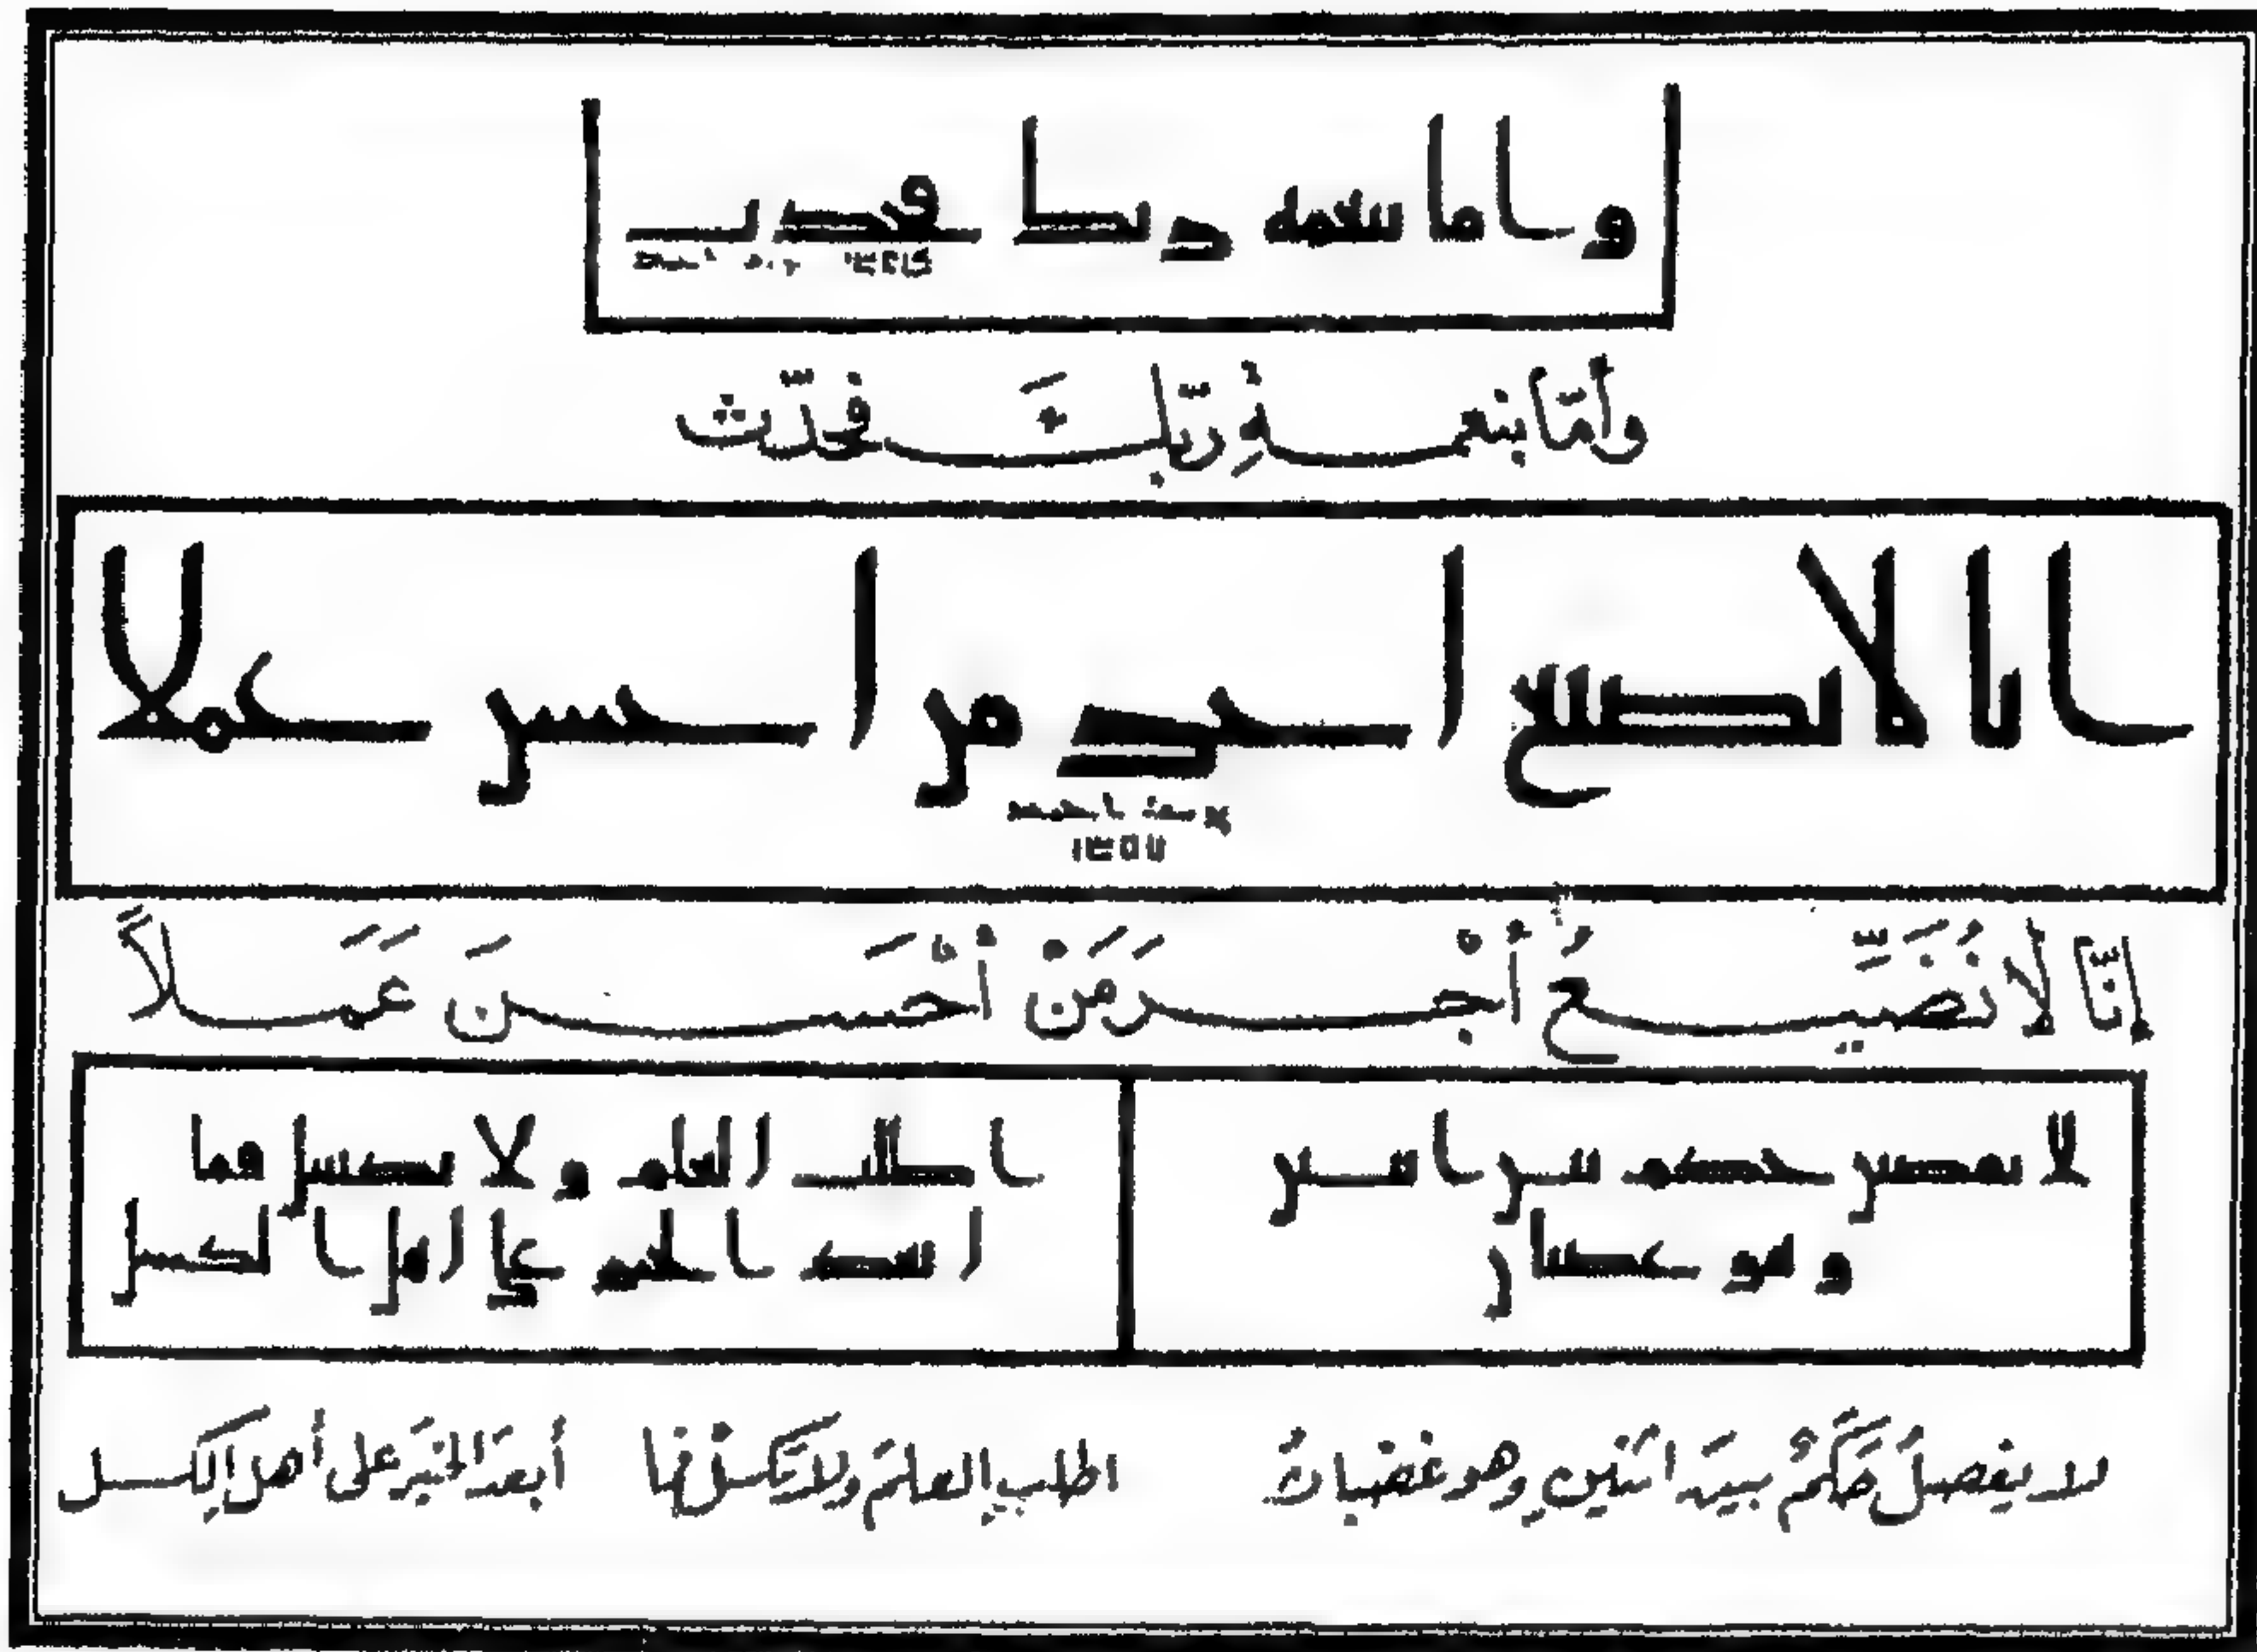 واما بنعمة ربك فحدث
وأمّا بنعمةِ ربّكَ فحدّث
انا لا نضيع اجر من احسن عملا
يوسف احمد
١٣٥٥
إنّا لَا نُضَيِّعُ أَجْرَ مَنْ أَحْسَنَ عَمَلاً
لا يفصل حكم بين اثنين
وهو غضبان
اطلب العلم ولا تكسل فما
ابعد الخير على اهل الكسل
لا يفصلُ حَكَمٌ بينَ اثنَينِ وهو غضبانٌ
اطلبِ العلمَ ولا تَكسلْ فما أبعدَ الخيرَ على أهلِ الكسل